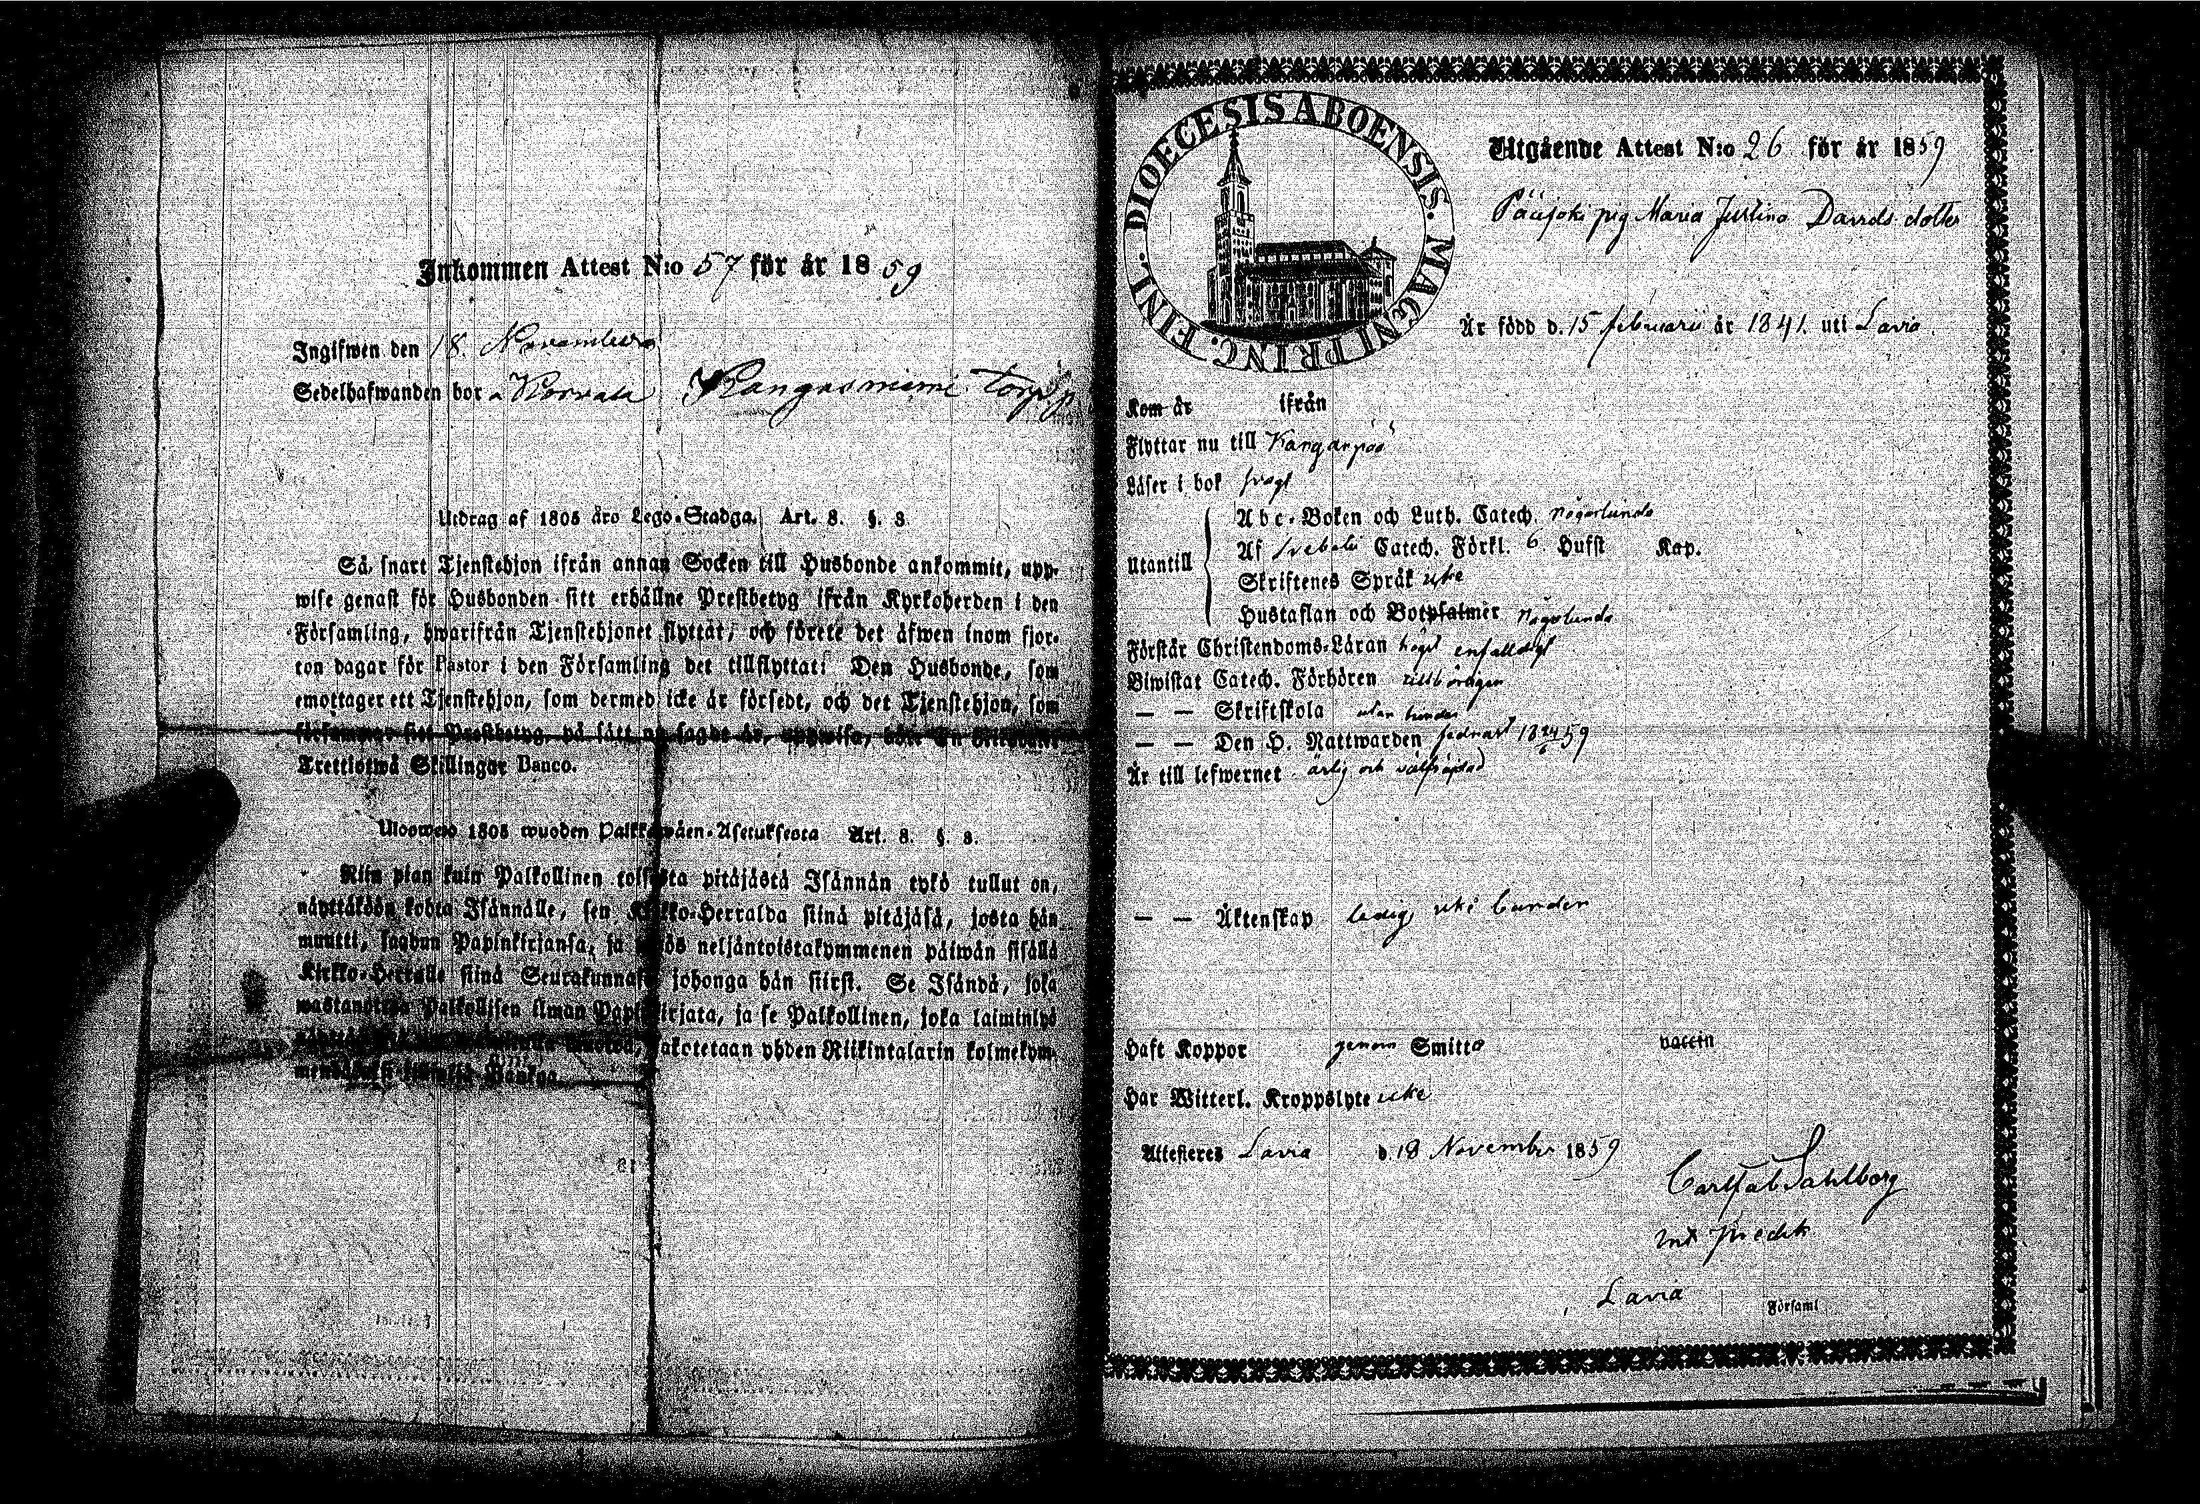 Inkommen Attest N:o 57 för år 1859
Ingifwen den 18 November
Sedelhafwanden bor Kangasniemi torp
Utdrag af 1805 års Lego-Stadga. Art. 8. §. 3.
Så snart Tjenstehjon ifrån annan Socken till Husbonde ankommit, upp-
wise genast för Husbonden sitt erhållne Prestbetyg ifrån Kyrkoherden i den
Församling, hwarifrån Tjenstehjonet flyttat, och förete det äfwen inom fjor-
ton dagar för Pastor i den Församling det tillflyttat: Den Husbonde, som
emottager ett Tjenstehjon, som dermed icke är försedt, och det Tjenstehjon, som
försummar sitt Prestbetyg, på sätt nu sagdt är, uppwisa, böte En Riksdaler
Trettiotwå Skillingar Banco.
Ulosweto 1805 wuoden Palkkawäen-Asetuksesta Art. 8. §. 3.
Niin pian kuin Palkollinen toisesta pitäjästä Isännän tykö tullut on,
näyttäköön kohta Isännälle, sen Kirkko-Herralda siinä pitäjäsä, josta hän
muutti, saadun Papinkirjansa, ja myös neljäntoistakymmenen päiwän sisällä
Kirkko-Herralle siinä Seurakunnasa johonga hän siirst. Se Isändä, joka
wastanottaa Palkollisen ilman Papinkirjata, ja se Palkollinen, joka laiminlyö
sakotetaan yhden Riikintalarin kolmekym-
DIOECESIS ABOENSIS. MAGNI PRINC. FINL.
Utgående Attest N:o 26 för år 1859
pig Maria Justina Davids dotter
Är född d. 15 februarii år 1841. uti Lavia.
Kom år ifrån
Flyttar nu till Kangarpää
Läser i bok svagt
Utantill
Abc-Boken och Luth. Catech. någorlunda
Af Svebelii Catech. Förkl. 6 Hufst Kap.
Skriftenes Språk icke
Hustaflan och Botpsalmer någorlunda
Förstår Christendoms-Läran högst enfaldigt
Biwistat Catech. Förhören
— — Skriftskola utan hinder
— — Den H. Nattwarden sednast 18 24/6 59
Är till lefwernet ärlig och välfräjdad
— — Äktenskap ledig, icke bunden
Haft Koppor genom Smitta vaccin
Har Witterl. Kroppslyte icke
Attesteres Lavia d. 18 November 1859
Sahlberg
Lavia Församl